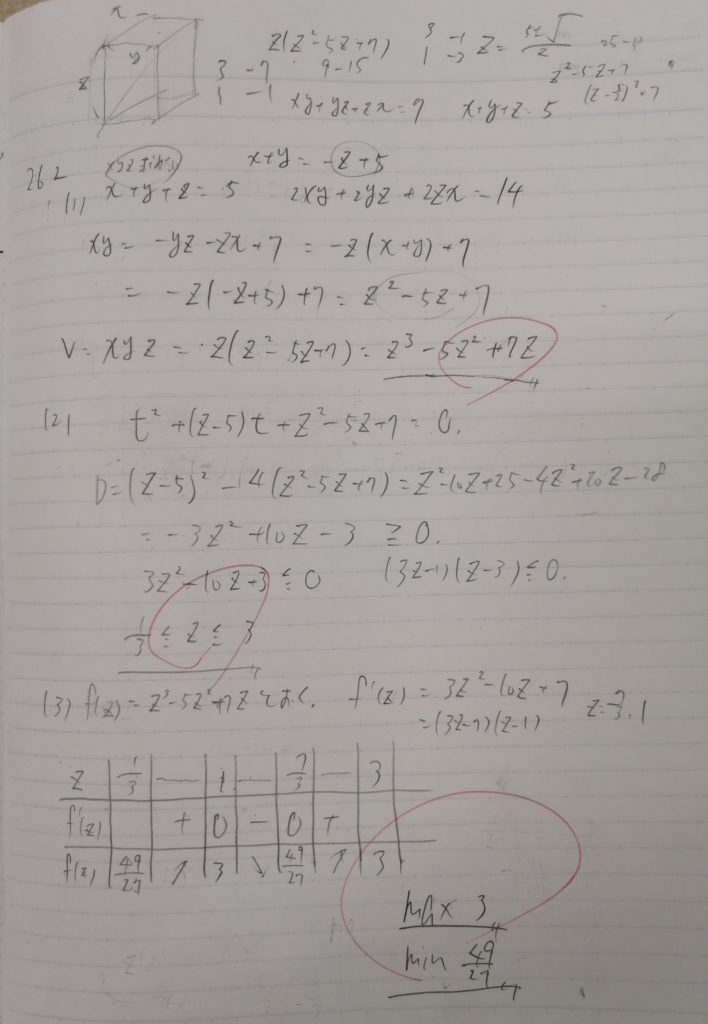 x
y
z
z(z²-5z+7)
9-15
3 -7
1 -1
3 -1
1 -3
z²-5z+7
xy+yz+zx=7 x+y+z=5
262
x+y=-z+5
(1) x+y+z=5 2xy+2yz+2zx=14
xy=-yz-zx+7=-z(x+y)+7
=-z(-z+5)+7=z²-5z+7
V=xyz=z(z²-5z+7)=z³-5z²+7z
(2) t²+(z-5)t+z²-5z+7=0.
D=(z-5)²-4(z²-5z+7)=z²-10z+25-4z²+20z-28
=-3z²+10z-3≧0.
3z²-10z+3≦0 (3z-1)(z-3)≦0.
1/3≦z≦3
(3) f(z)=z³-5z²+7zとおく. f'(z)=3z²-10z+7
=(3z-7)(z-1) z=7/3, 1
z 1/3 — 1 — 7/3 — 3
f'(z) + 0 - 0 +
f(z) 49/27 ↗ 3 ↘ 49/27 ↗ 3
max 3
min 49/27